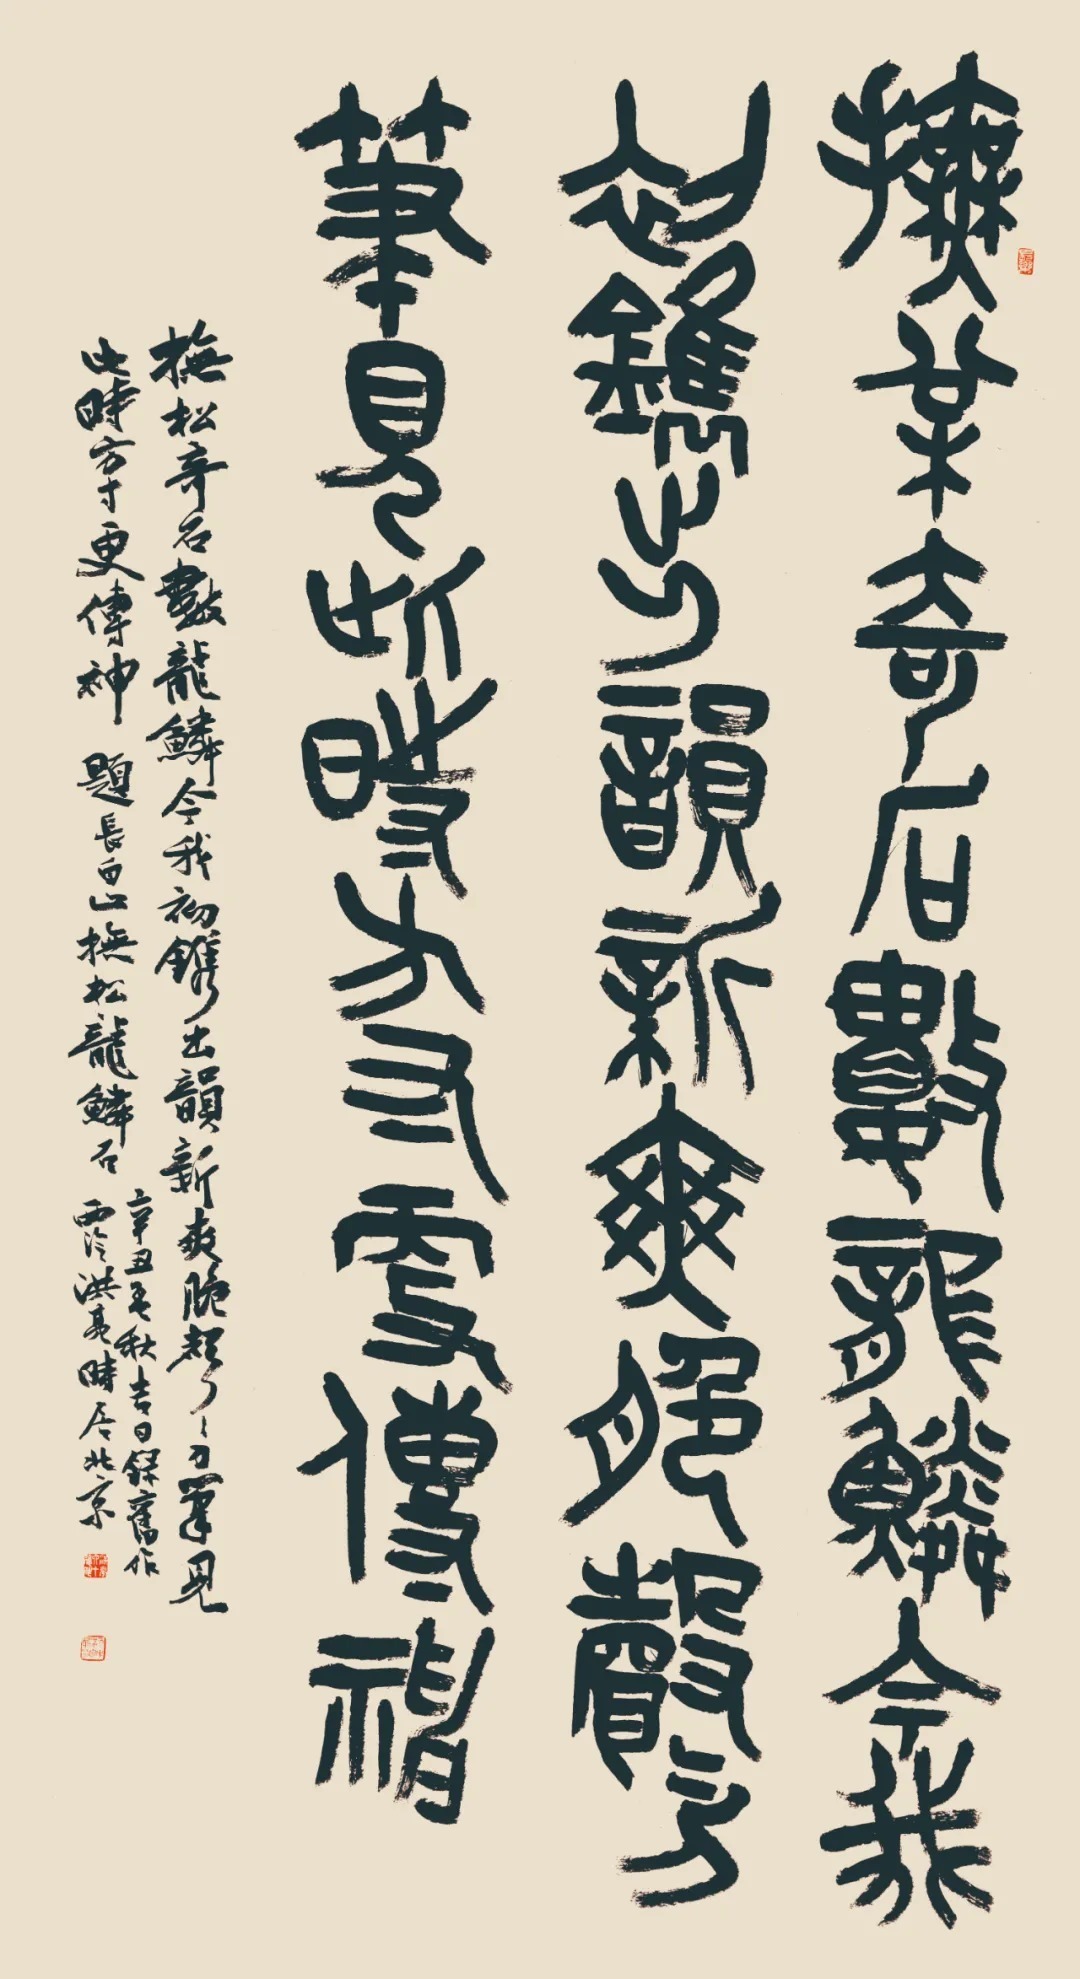 撫松奇石數龍鱗今我
初鐫出韻新爽腕聲〻刀
筆見此時方寸更傳神
撫松奇石數龍鱗今我初鐫出韻新爽腕聲〻刀筆見
此時方寸更傳神 題長白山撫松龍鱗石
辛丑孟秋吉日錄舊作
西泠洪亮時居北京